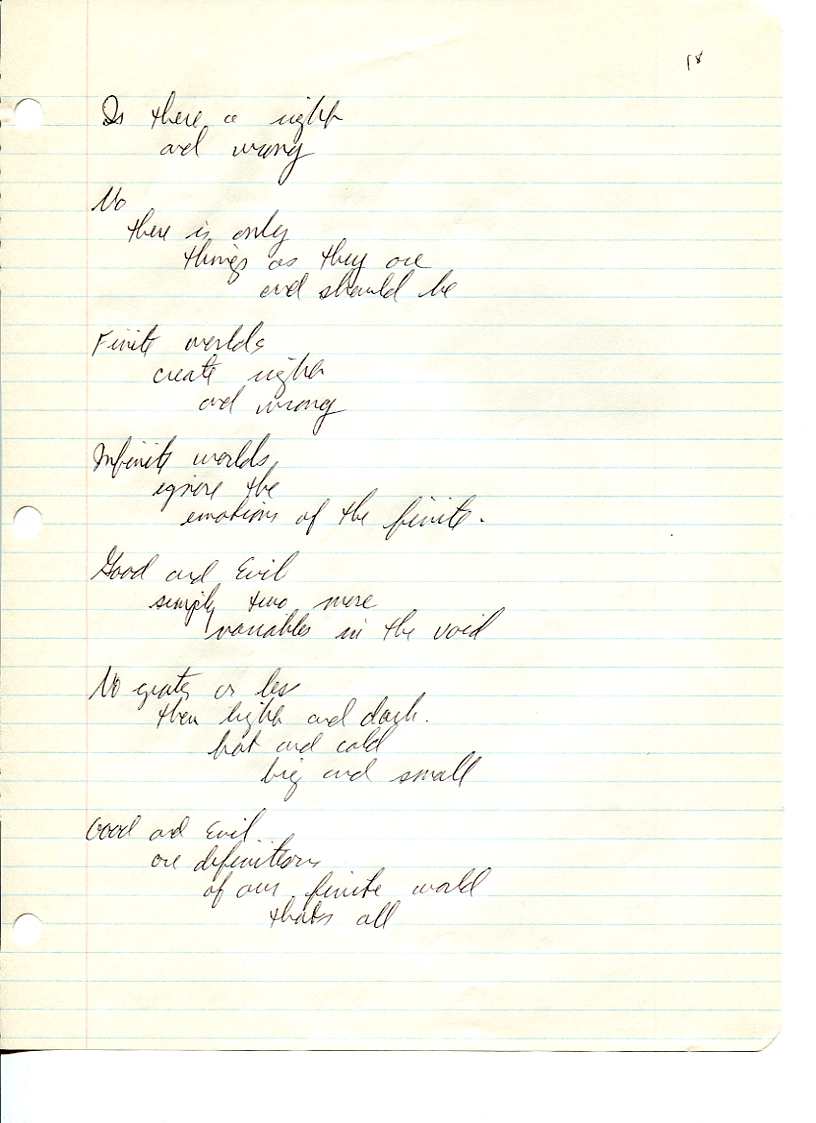 18
Is there a right
and wrong
No
there is only
things as they are
and should be
Finite worlds
create right
and wrong
Infinite worlds
ignore the
emotions of the finite.
Good and Evil
simply two more
variables in the void
No greater or less
then light and dark.
hot and cold
big and small
Good and Evil
are definitions
of our finite world
thats all